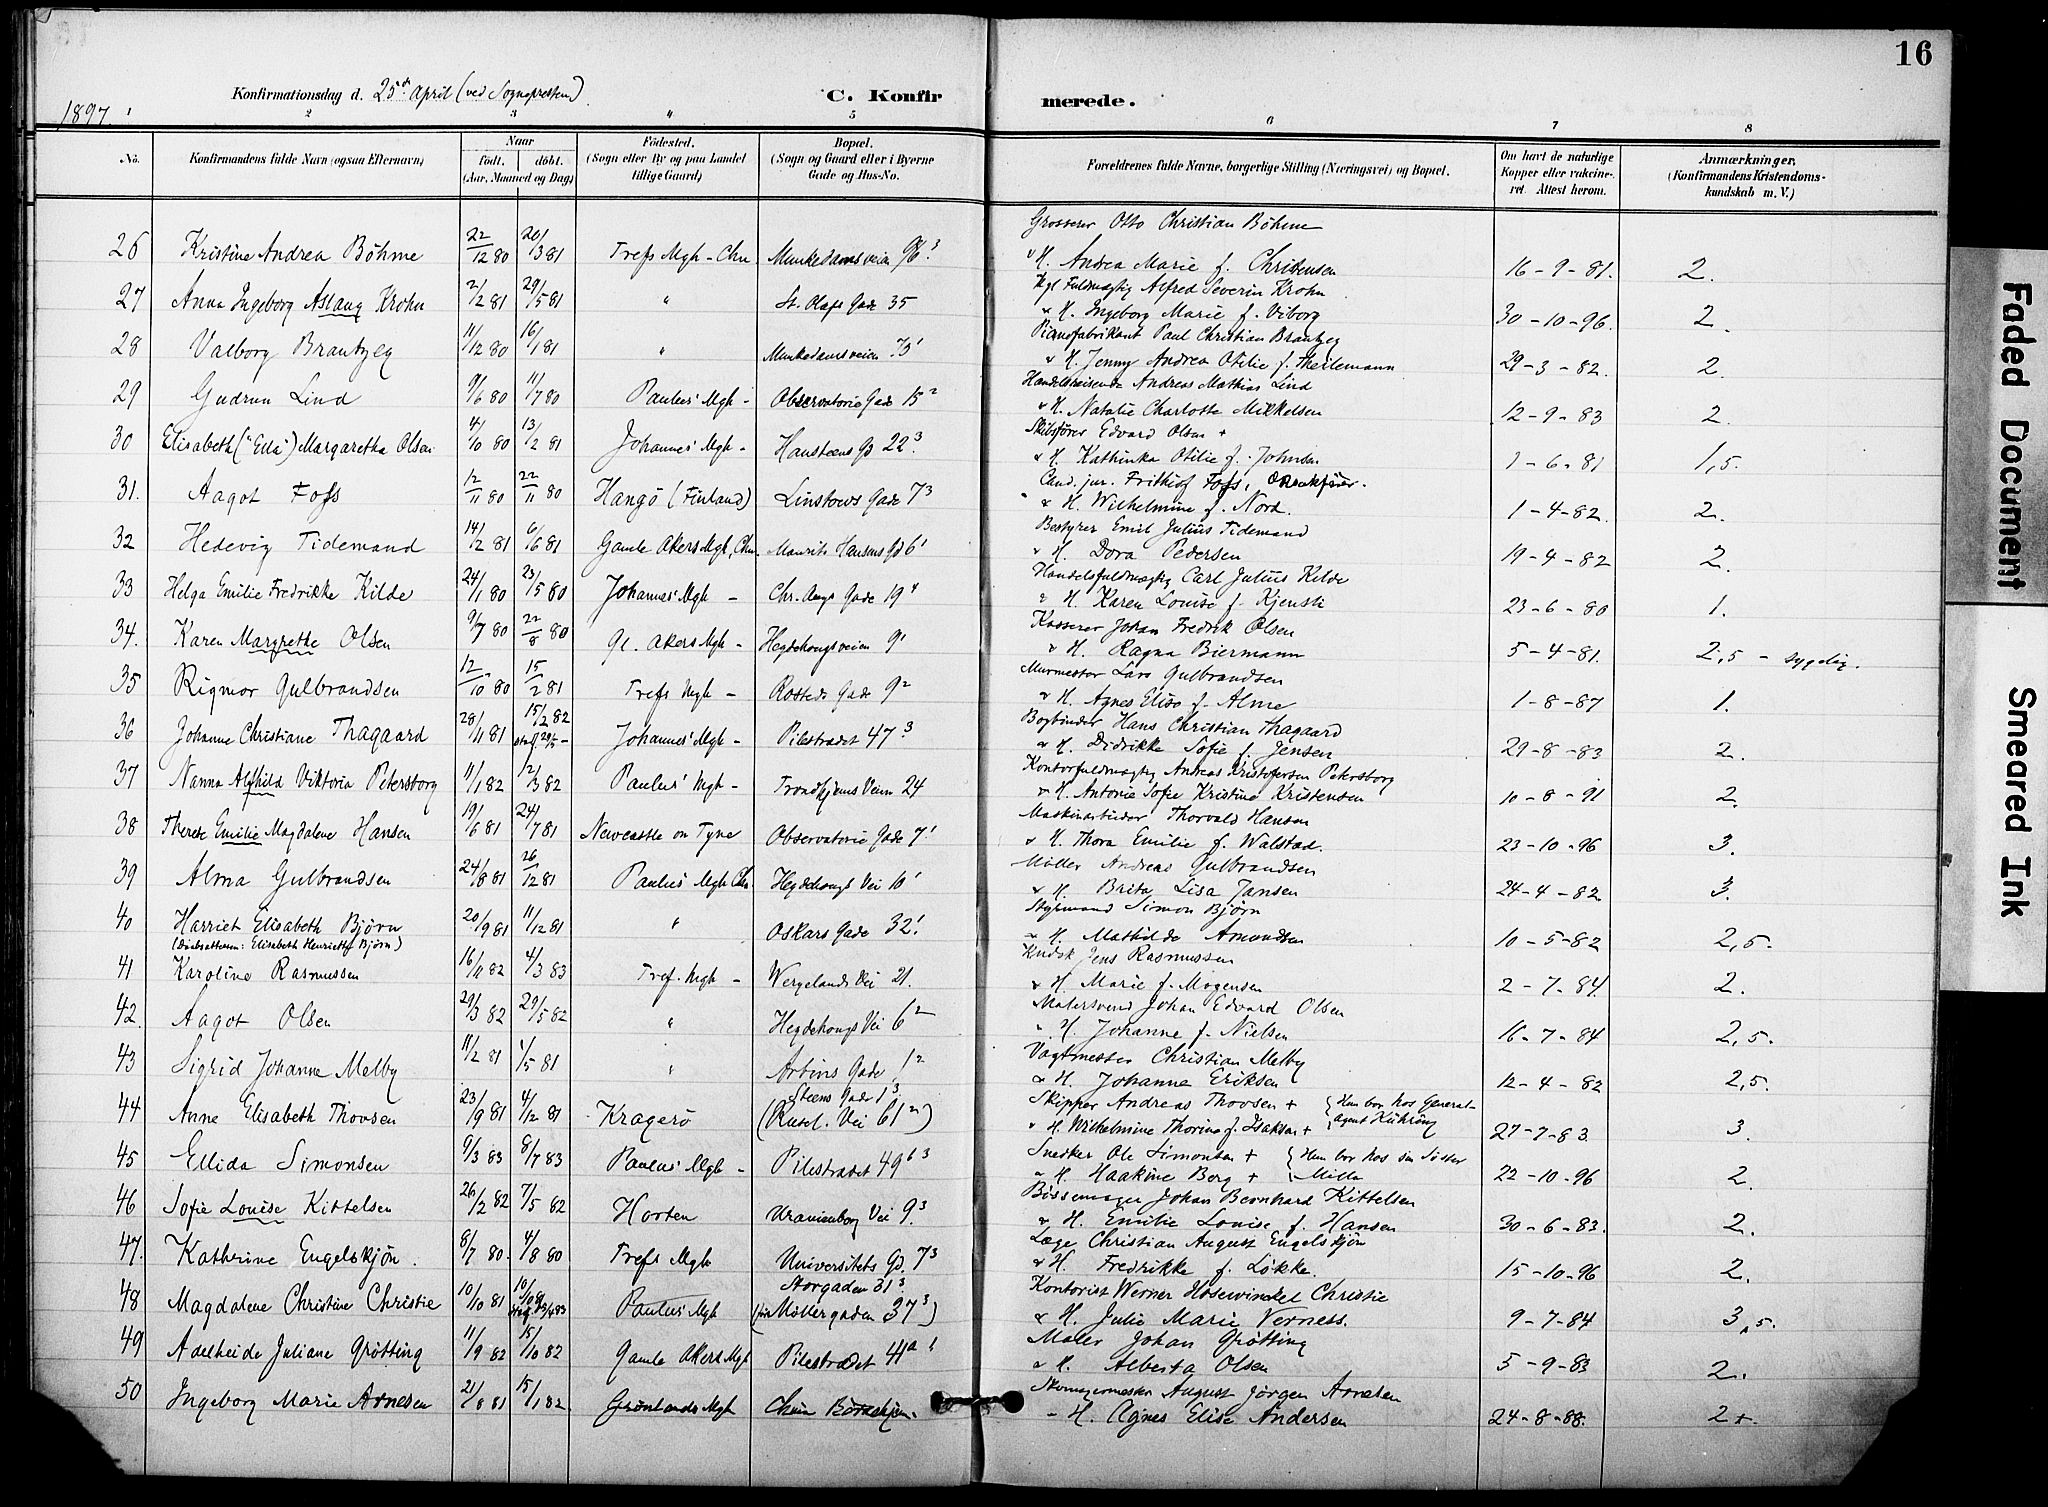 16
Konfirmationsdag d. 25de April (ved Sognepresten)
C. Konfirmerede.
1897.
1 2 3 4 5 6 7 8
No. Konfirmandens fulde Navn (ogsaa Efternavn) Naar født. døbt. (Aar, Maaned og Dag) Fødested. (Sogn eller By og paa Landet tillige Gaard) Bopæl. (Sogn og Gaard eller i Byerne Gade og Hus-No. Forældrenes fulde Navne, borgerlige Stilling (Næringsvei) og Bopæl. Om havt de naturlige Kopper eller vakcineret. Attest herom. Anmærkninger, (Konfirmandens Kristendomskundskab m. V.)
Grosserer Otto Christian Böhme
26 Kristine Andrea Böhme 22/12 80 20/3 81 Trefs Mgh - Chn Munkedamsveien 96³ & H. Andrea Marie f. Christensen 16-9-81. 2.
Kgl Fuldmægtig Alfred Severin Krohn
27 Anna Ingeborg Aslaug Krohn 2/2 81 29/5 81 " St. Olafs Gade 35 & H. Ingeborg Marie f. Viborg 30-10-96. 2.
Pianofabrikant Paul Christian Brantzeg
28 Valborg Brantzeg 11/12 80 16/1 81 " Munkedamsveien 73¹ & H. Jenny Andrea Otilie f. Theilemann 29-3-82. 2.
Handelsreisende Andreas Mathias Lind
29 Gudrun Lind 9/6 80 11/7 80 Paulus' Mgh - Observatorie Gade 15² & H. Natalie Charlotte Mikkelsen 12-9-83 2.
Skibsfører Edvard Olsen +
30 Elisabeth ("Ella") Margaretha Olsen 4/10 80 13/2 81 Johannes' Mgh - Hansteens Gd 22³ & H. Kathinka Otilie f. Johnsen 1-6-81 1,5.
Cand. jur. Frithiof Foss,
31. Aagot Foss 12/11 80 22/11 80 Hangö (Finland) Linstows Gade 7³ & H. Wilhelmine f. Nord. 1-4-82. 2.
Bestyrer Emil Julius Tidemand
32 Hedevig Tidemand 14/2 81 6/6 81 Gamle Akers Mgh, Chn. Maurits Hansens Gd 6¹ & H. Dora Pedersen 19-4-82 2.
Handelsfuldmægtig Carl Julius Kilde
33 Helga Emilie Fredrikke Kilde 24/1 80 23/5 80 Johannes' Mgh - Chr. Augs Gade 19⁴ & H. Karen Louise f. Kjenslt 23-6-80 1.
Kasserer Johan Fredrik Olsen
34. Karen Margrethe Olsen 9/7 80 22/8 80 Gl. Akers Mgh - Hegdehougsveien 9¹ & H. Ragna Biermann 5-4-81. 2,5 - sygelig.
Murmester Lars Gulbrandsen
35 Rigmor Gulbrandsen 12/10 80 15/2 81 Trefs Mgh - Rosteds Gade 9² & H. Agnes Elise f. Alme 1-8-87 1.
Bogbinder Hans Christian Thagaard
36 Johanne Christiane Thagaard 28/11 81 15/2 82 Johannes' Mgh - Pilestrædet 47³ & H. Didrikke Sofie f. Jensen 29-8-83 2.
Kontorfuldmægtig Andreas Kristofersen Petersborg
37 Nanna Alfhild Viktoria Petersborg 11/1 82 12/3 82 Paulus' Mgh - Trondhjems Veien 24 & H. Antonie Sofie Kristine Kristensen 10-8-91 2.
Maskinarbeider Thorvald Hansen
38 Therese Emilie Magdalene Hansen 19/6 81 24/7 81 Newcastle on Tyne Observatorie Gade 7¹ & H. Thora Emilie f. Walstad. 23-10-96 3.
Møller Andreas Gulbrandsen
39 Alma Gulbrandsen 24/8 81 26/12 81 Paulus' Mgh Chn. Hegdehougs Vei 10¹ & H. Brita Lisa Jansen 24-4-82 3.
Styrmand Simon Bjørn
40 Harriet Elisabeth Bjørn 20/9 81 11/12 81 " Oskars Gade 32¹ & H. Mathilde Amundsen 10-5-82 2,5.
(Daabsattesten: Elisabeth Henriette Bjørn)
Kudsk Jens Rasmussen
41 Karoline Rasmussen 16/11 82 4/3 83 Tref. Mgh - Wergelands Vei 21. & H. Marie f. Mogensen 2-7-84. 2.
Malersvend Johan Edvard Olsen
42. Aagot Olsen 29/3 82 29/5 82 " Hegdehougs Vei 6² & H. Johanne f. Nielsen 16-7-84 2,5.
Vagtmester Christian Melby
43 Sigrid Johanne Melby 11/2 81 1/5 81 " Arbins Gade 1² & H. Johanne Eriksen 12-4-82 2,5.
Steens Gade 1³ Skipper Andreas Thovsen + {Hun bor hos General-
44 Anne Elisabeth Thovsen 23/9 81 4/12 81 Kragerø (Rusel. Vei 61²) & H. Wilhelmine Thorine f. Isaksen + agent Kühring 27-7-83. 3.
Snedker Ole Simonsen + {Hun bor hos sin Søster
45 Ellida Simonsen 9/3 83 8/7 83 Paulus' Mgh - Pilestrædet 49b³ & H. Haakine Borg + Milla 22-10-96 2.
Bøssemager Johan Bernhard Kittelsen
46 Sofie Louise Kittelsen 26/2 82 7/5 82 Horten Uranienborg Vei 9³ & H. Emilie Louise f. Hansen 30-6-83. 2.
Læge Christian August Engelskjøn
47. Kathrine Engelskjøn. 8/7 80. 4/8 80 Trefs Mgh Universitets Gd. 7³ & H. Fredrikke f. Løkke. 15-10-96 2.
Storgaden 31³ Kontorist Werner Hosewinckel Christie
48 Magdalene Christine Christie 10/10 81 Paulus' Mgh (før Møllergaden 37³) & H. Julie Marie Verness. 9-7-84 3,5.
Maler Johan Grøtting
49 Adelheide Juliane Grøtting 11/9 82 15/10 82 Gamle Akers Mgh Pilestrædet 41a¹ & H. Alberta Olsen 5-9-83 2.
Skomagermester August Jørgen Arnesen
50 Ingeborg Marie Arnesen 21/8 81 15/1 82. Grønlands Mgh - H. Agnes Elise Andersen 24-8-88. 2+
Faded Document
Smeared Ink